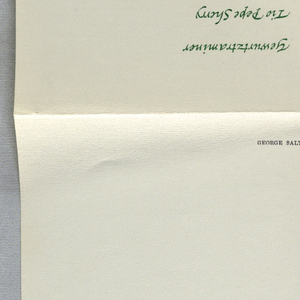 Gewurtztraminer
Tio Pepe Sherry
GEORGE SALT